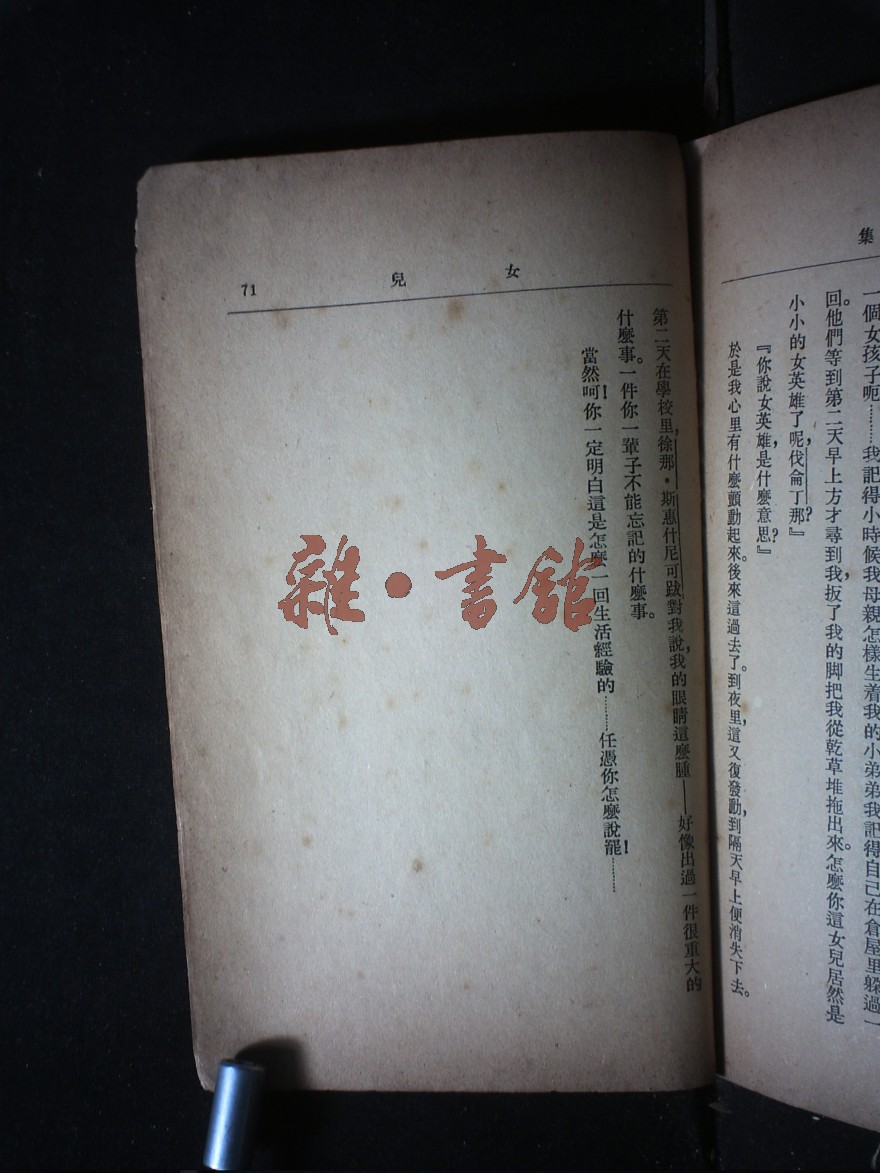 集
一個女孩子呃………我記得小時候我母親怎樣生着我的小弟弟我記得自己在倉屋里躱過一
回。他們等到第二天早上方才尋到我，扳了我的脚把我從乾草堆拖出來。怎麼你這女兒居然是
小小的女英雄了呢，伐侖丁那？』
『你說女英雄，是什麼意思？』
於是我心里有什麼顫動起來。後來這過去了。到夜里，這又復發動，到隔天早上便消失下去。
女兒
71
第二天在學校里，徐那·斯惠什尼可跋對我說，我的眼睛這麼腫——好像出過一件很重大的
什麼事。一件你一輩子不能忘記的什麼事。
當然！呵你一定明白這是怎麼一回生活經驗的………任憑你怎麼說罷！………
雜·書館